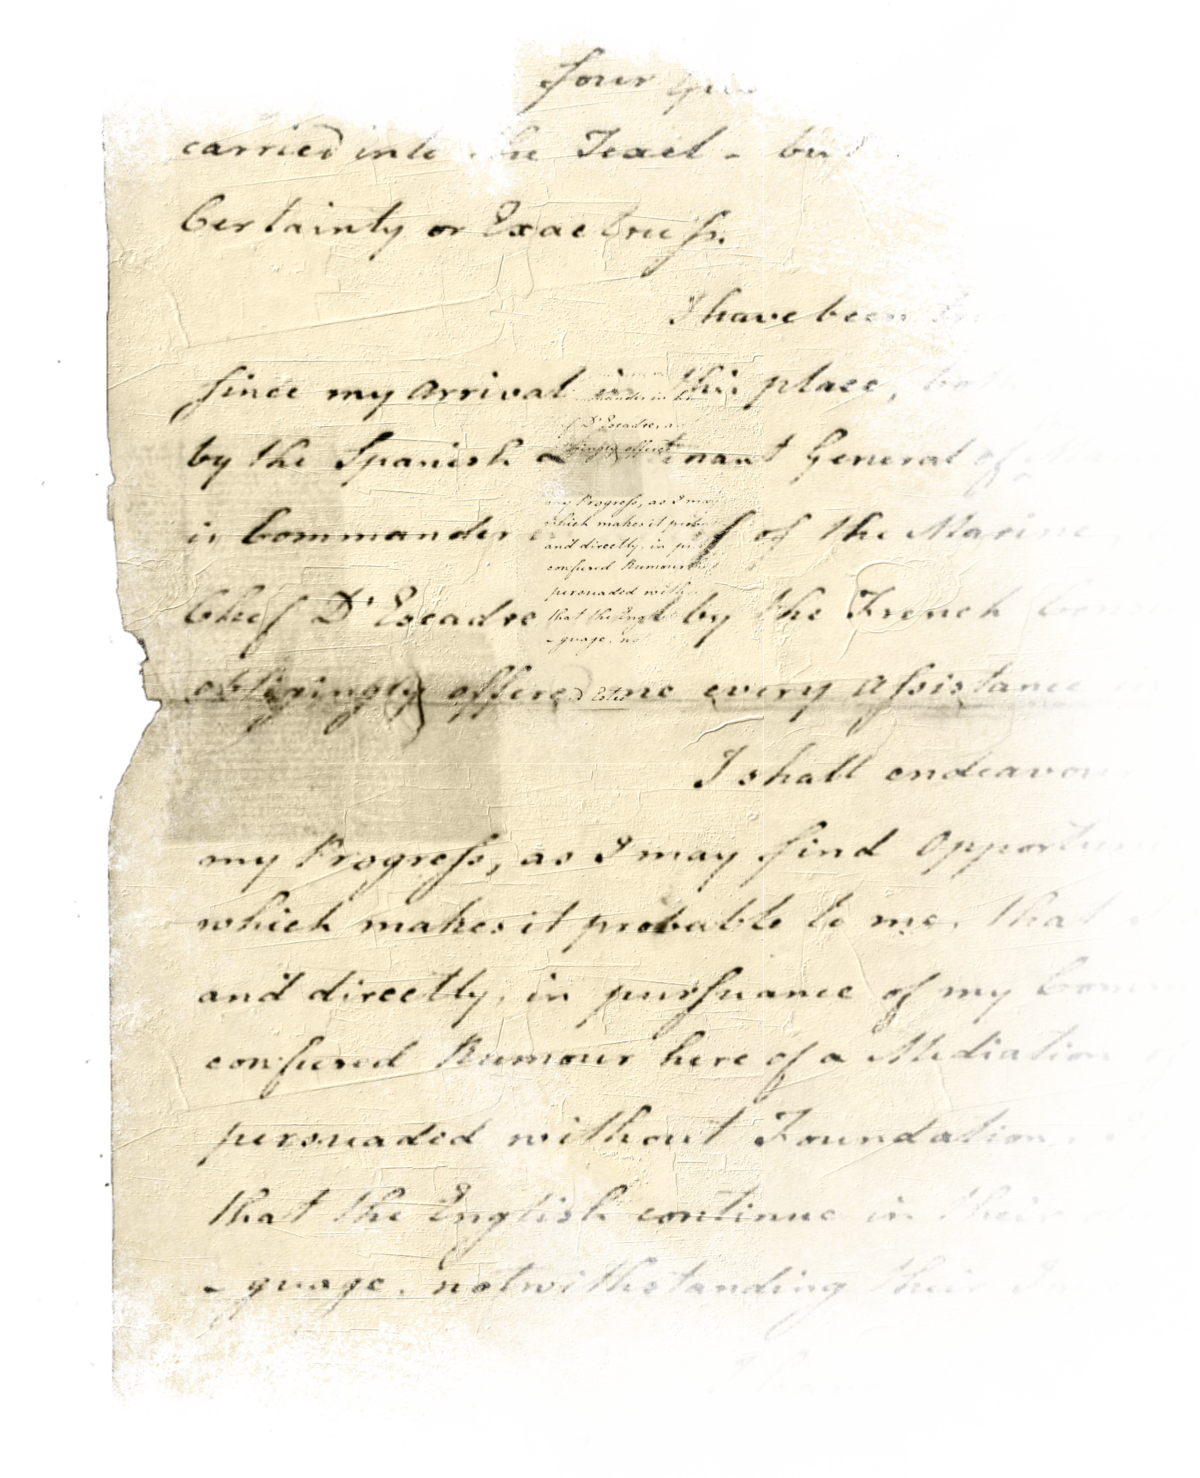 four
carried into the Texel - but
Certainty or Exactness.
I have been
since my Arrival in this place,
by the Spanish General of
is Commander of the Marine,
Chef D'Escadre by the French
obligingly offered me every Assistance
I shall endeavour
my Progress, as I may find
which makes it probable to me, that
and directly, in pursuance of my
confused Rumour here of a Mediation
persuaded without Foundation
that the English continue in their
-guage, notwithstanding their
D'Escadre, a
obligingly offered
my Progress, as I may
which makes it
and directly, in
confused Rumour
persuaded with
that the
-guage, not